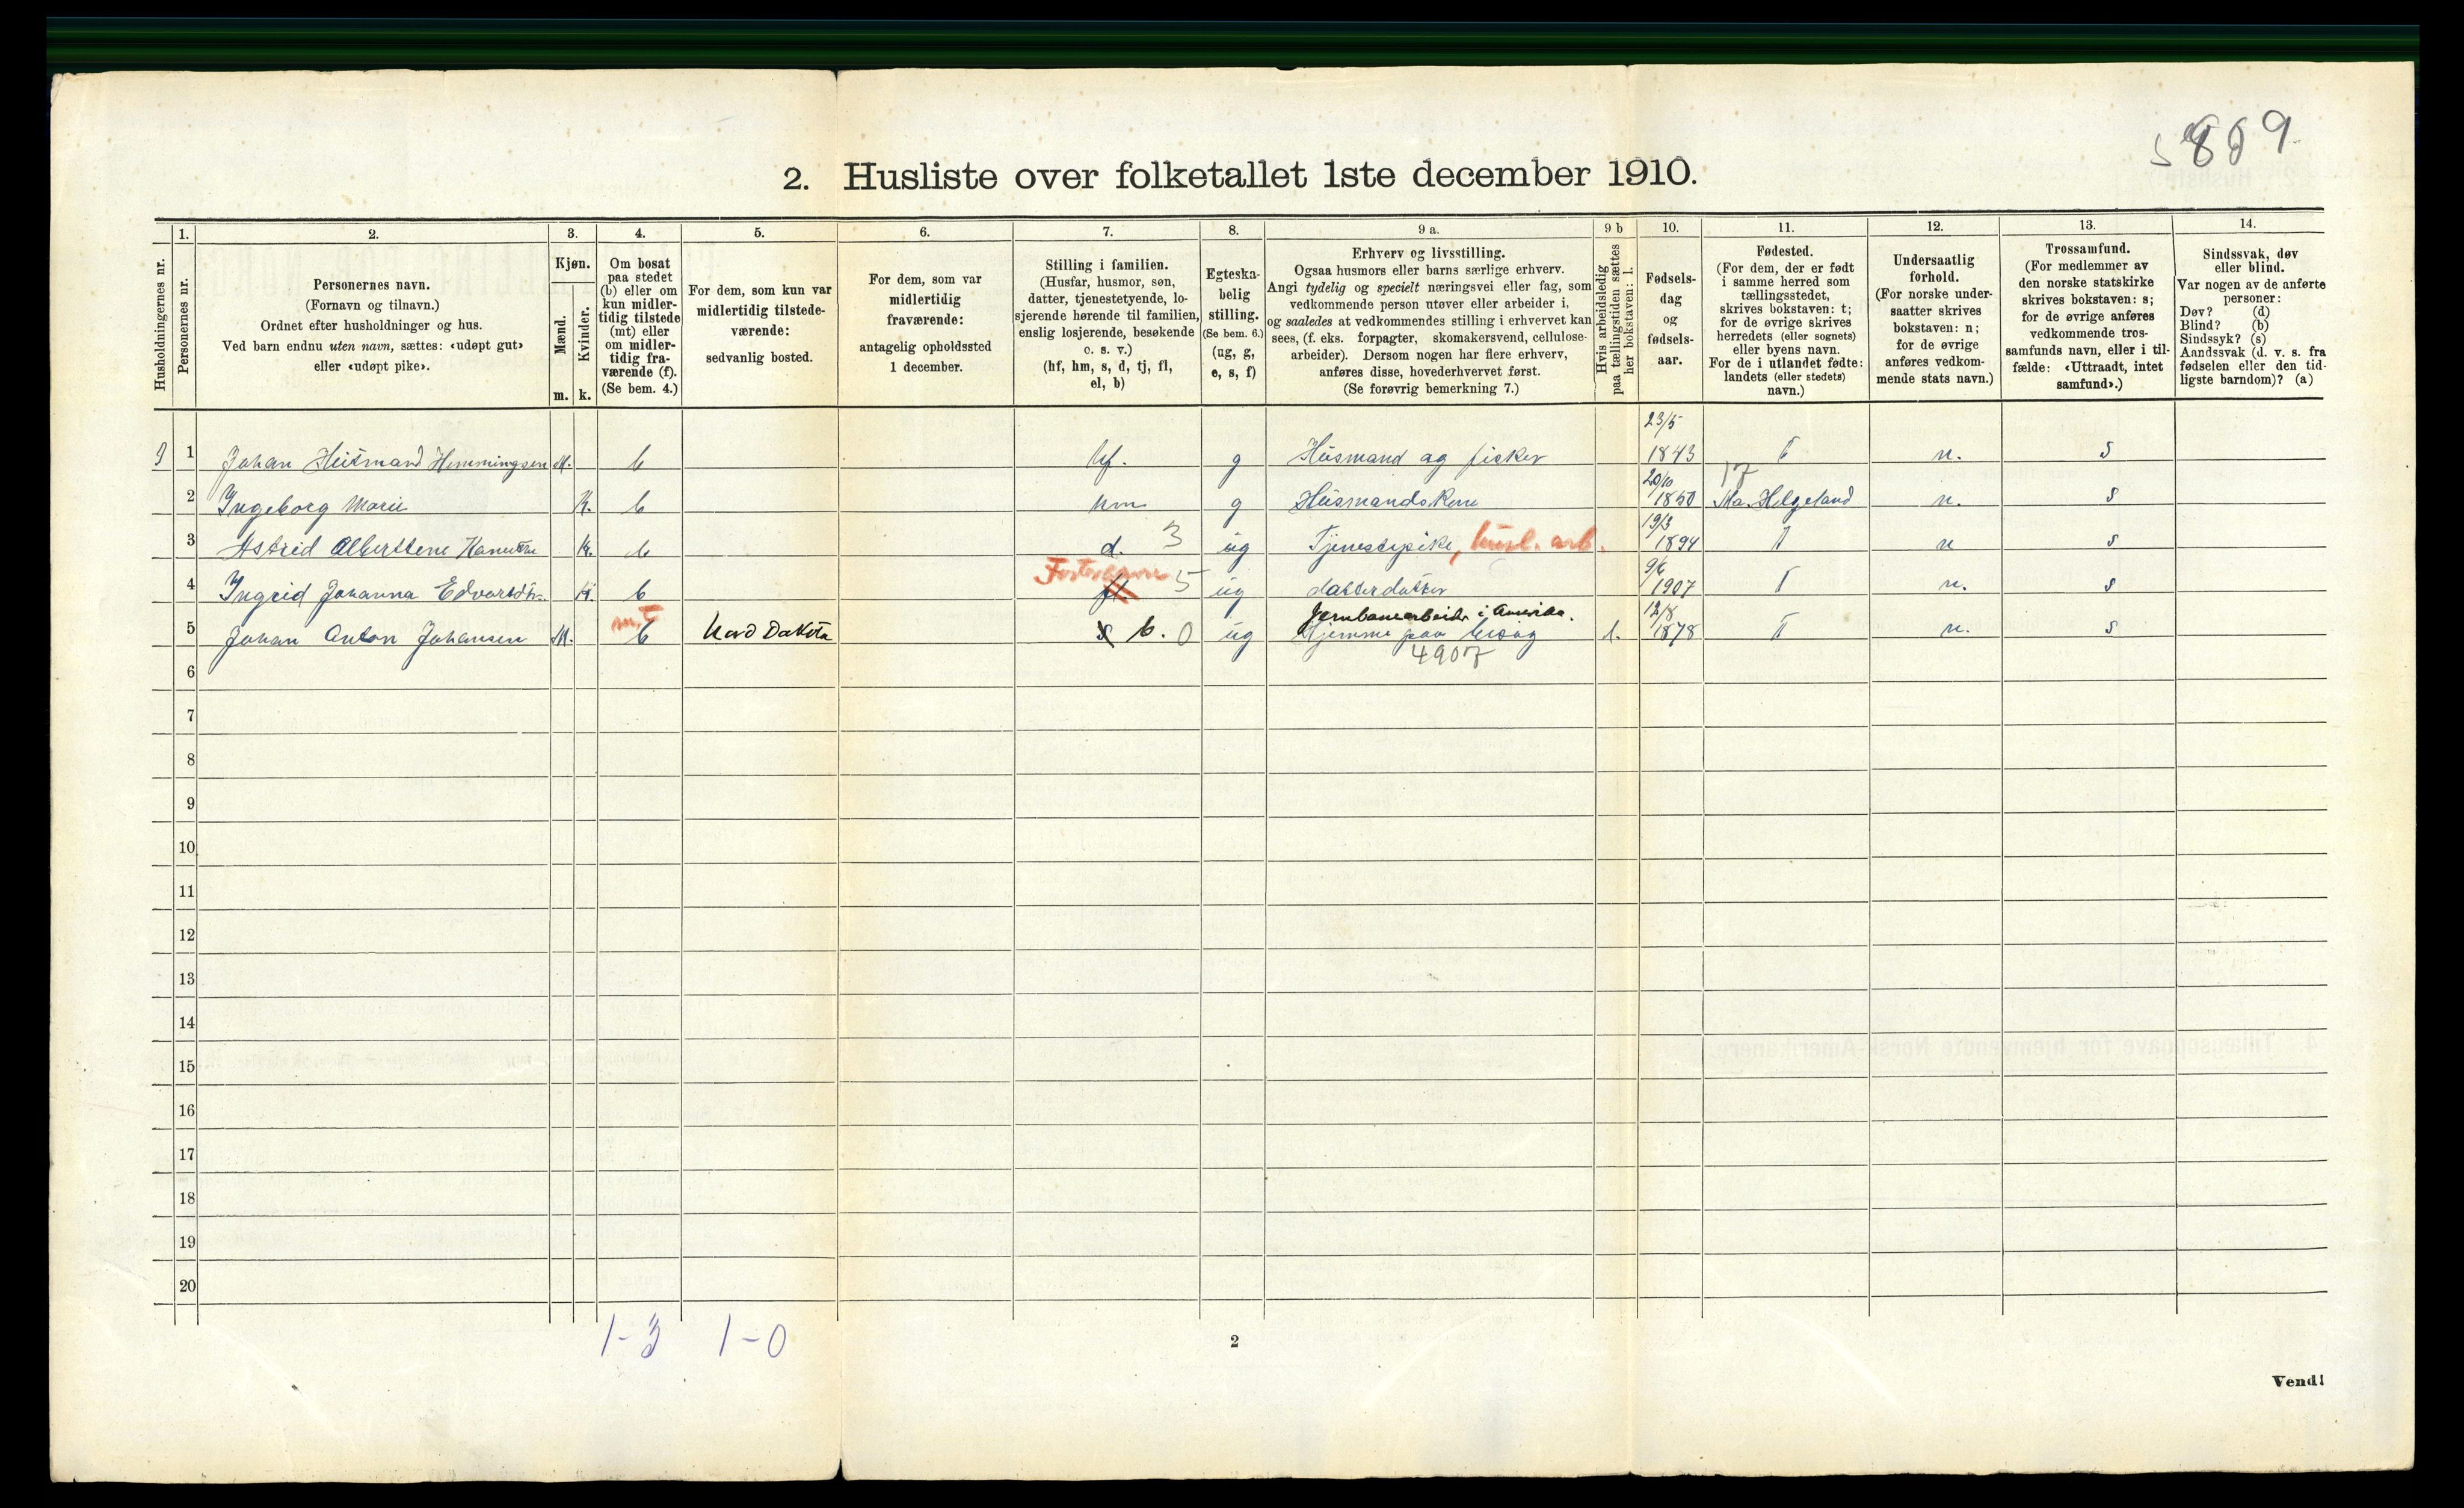 889
2. Husliste over folketallet 1ste december 1910.
Husholdningernes nr.
1.
Personernes nr.
2.
Personernes navn.
(Fornavn og tilnavn.)
Ordnet efter husholdninger og hus.
Ved barn endnu uten navn, sættes: «udøpt gut»
eller «udøpt pike».
3.
Kjøn.
Mænd.
Kvinder.
m.
k.
4.
Om bosat
paa stedet
(b) eller om
kun midler-
tidig tilstede
(mt) eller
om midler-
tidig fra-
værende (f).
(Se bem. 4.)
5.
For dem, som kun var
midlertidig tilstede-
værende:
sedvanlig bosted.
6.
For dem, som var
midlertidig
fraværende:
antagelig opholdssted
1 december.
7.
Stilling i familien.
(Husfar, husmor, søn,
datter, tjenestetyende, lo-
sjerende hørende til familien,
enslig losjerende, besøkende
o. s. v.)
(hf, hm, s, d, tj, fl,
el, b)
8.
Egteska-
belig
stilling.
(Se bem. 6.)
(ug, g,
e, s, f)
9 a.
Erhverv og livsstilling.
Ogsaa husmors eller barns særlige erhverv.
Angi tydelig og specielt næringsvei eller fag, som
vedkommende person utøver eller arbeider i,
og saaledes at vedkommendes stilling i erhvervet kan
sees, (f. eks. forpagter, skomakersvend, cellulose-
arbeider). Dersom nogen har flere erhverv,
anføres disse, hovederhvervet først.
(Se forøvrig bemerkning 7.)
9 b
Hvis arbeidsledig
paa tællingstiden sættes
her bokstaven: l.
10.
Fødsels-
dag
og
fødsels-
aar.
11.
Fødested.
(For dem, der er født
i samme herred som
tællingsstedet,
skrives bokstaven: t;
for de øvrige skrives
herredets (eller sognets)
eller byens navn.
For de i utlandet fødte:
landets (eller stedets)
navn.)
12.
Undersaatlig
forhold.
(For norske under-
saatter skrives
bokstaven: n;
for de øvrige
anføres vedkom-
mende stats navn.)
13.
Trossamfund.
(For medlemmer av
den norske statskirke
skrives bokstaven: s;
for de øvrige anføres
vedkommende tros-
samfunds navn, eller i til-
fælde: «Uttraadt, intet
samfund».)
14.
Sindssvak, døv
eller blind.
Var nogen av de anførte
personer:
Døv? (d)
Blind? (b)
Sindssyk? (s)
Aandssvak (d. v. s. fra
fødselen eller den tid-
ligste barndom)? (a)
1 Johan Heitmand Hemmingsen M. b hf. g Husmand og fisker 23/5 1843 T n. s
2 Ingeborg Marie K. b hm g Husmandskone 20/10 1850 17 Na. Helgeland n. s
3 Astrid Alberttene K. b d. 3 ug Tjenestepike, husl. arb. 19/3 1894 T n s
4 Ingrid Johanna Edvartdtr. K. b fl. 5 ug datterdatter 9/6 1907 T n. s
5 Johan Anton Johansen M. m.t b Nord Dakota s b. 0 ug Jernbanearbeider i Amerika. Hjemme paa besøg 4907 l. 12/8 1878 T n. s
6
7
8
9
10
11
12
13
14
15
16
17
18
19
20
1-3 1-0
2
Vend!